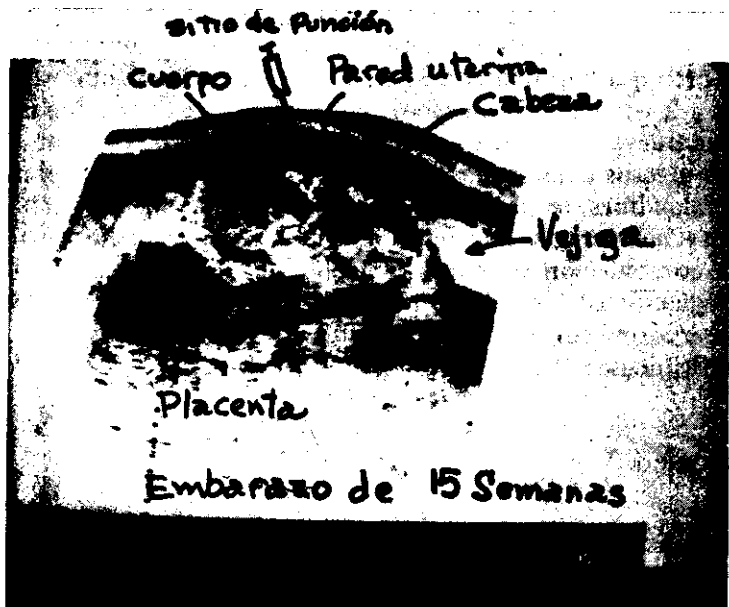 sitio de Punción
Cuerpo
Pared uterina
Cabeza
Vejiga
Placenta
Embarazo de 15 Semanas